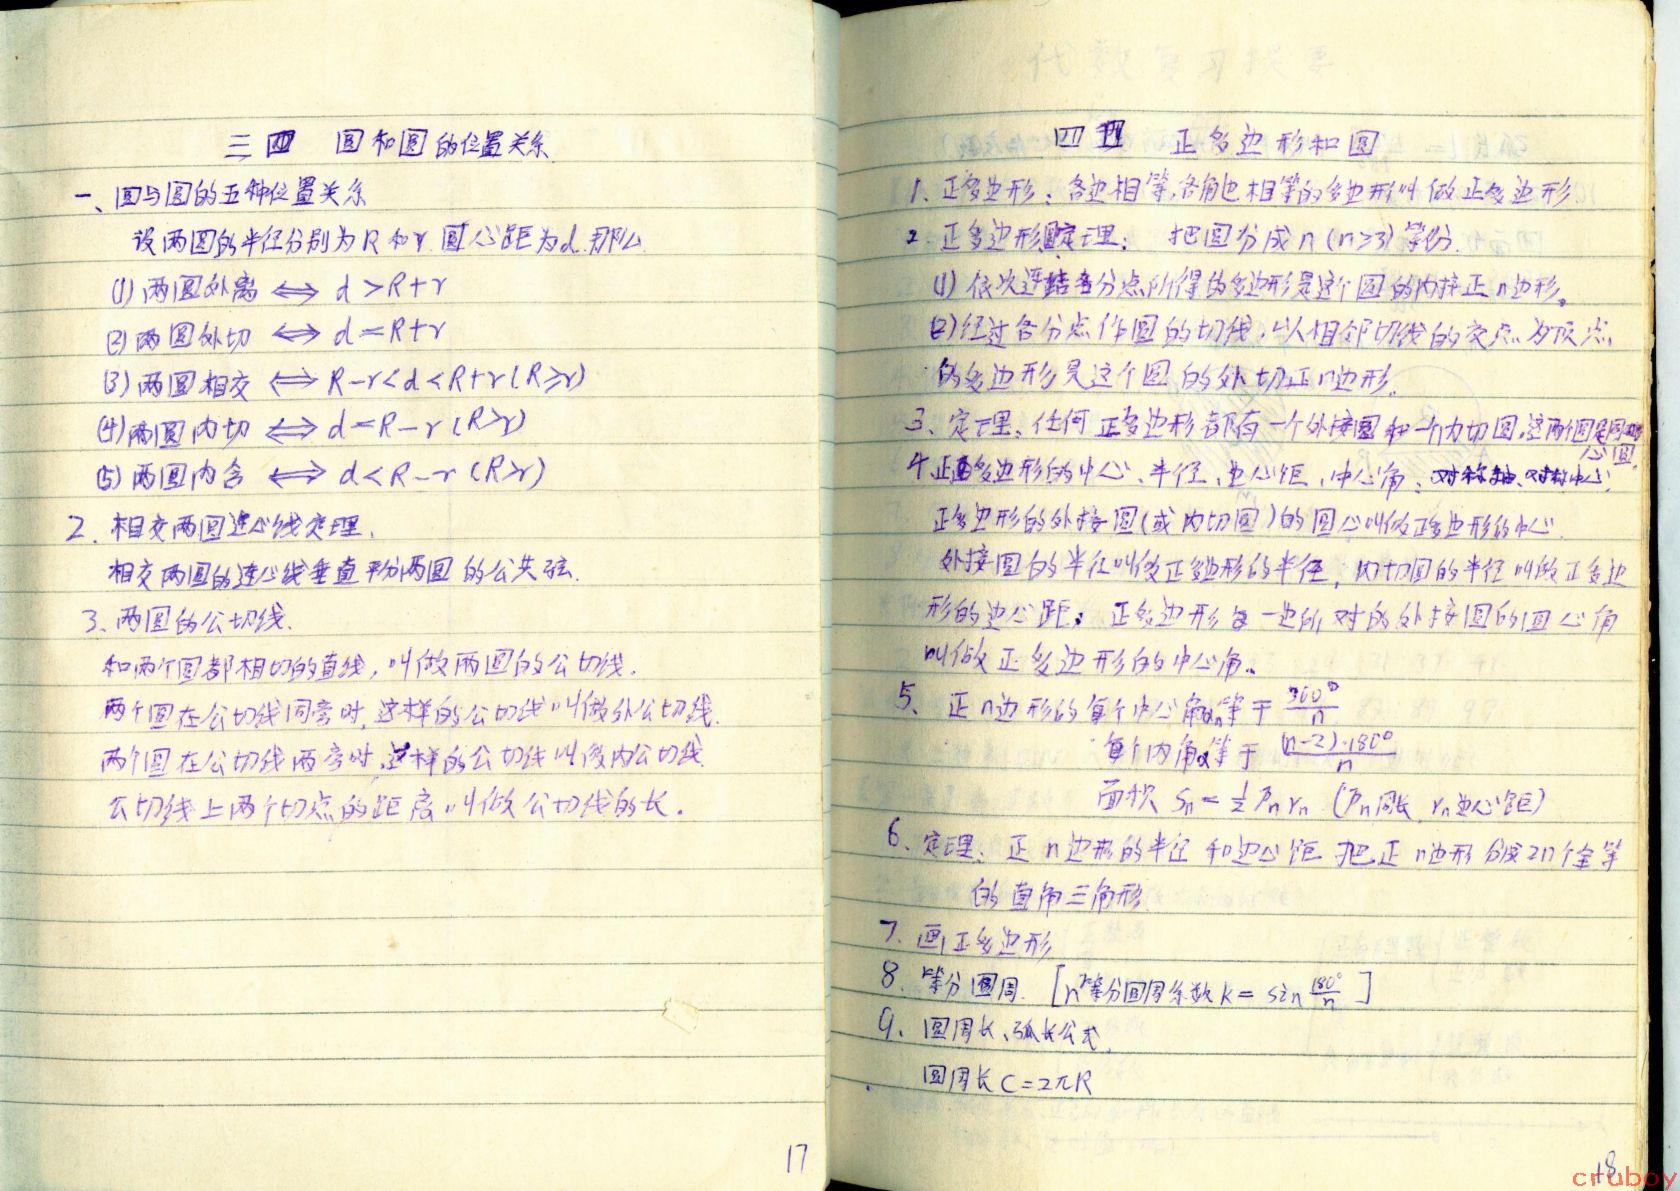 三 四 圆和圆的位置关系
一、圆与圆的五种位置关系
设两圆的半径分别为R和r.圆心距为d.那么
(1)两圆外离 ⟺ d>R+r
(2)两圆外切 ⟺ d=R+r
(3)两圆相交 ⟺ R-r<d<R+r(R≥r)
(4)两圆内切 ⟺ d=R-r(R>r)
(5)两圆内含 ⟺ d<R-r(R>r)
2、相交两圆连心线定理.
相交两圆的连心线垂直平分两圆的公共弦.
3、两圆的公切线.
和两个圆都相切的直线,叫做两圆的公切线.
两个圆在公切线同旁时,这样的公切线叫做外公切线.
两个圆在公切线两旁时,这样的公切线叫做内公切线.
公切线上两个切点的距离叫做公切线的长.
17
四 五 正多边形和圆
1、正多边形:各边相等,各角也相等的多边形叫做正多边形
2、正多边形定理: 把圆分成n(n≥3)等份.
(1)依次连结各分点所得的多边形是这个圆的内接正n边形。
(2)经过各分点作圆的切线,以相邻切线的交点为顶点
的多边形是这个圆的外切正n边形.
3、定理:任何正多边形都有一个外接圆和一个内切圆,这两个圆是同
心圆.
4.正多边形的中心、半径、边心距、中心角;对称轴、对称中心;
正多边形的外接圆(或内切圆)的圆心叫做正多边形的中心.
外接圆的半径叫做正多边形的半径,内切圆的半径叫做正多边
形的边心距; 正多边形每一边所对的外接圆的圆心角
叫做正多边形的中心角。
5、正n边形的每个中心角αn等于 360°/n
每个内角等于 (n-2)·180°/n
面积 Sn=½Pnrn (Pn周长,rn边心距)
6、定理:正n边形的半径和边心距把正n边形分成2n个全等
的直角三角形.
7、画正多边形
8、等分圆周. [n等分圆周系数K=sin 180°/n]
9、圆周长、弧长公式.
圆周长C=2πR
18
cruboy